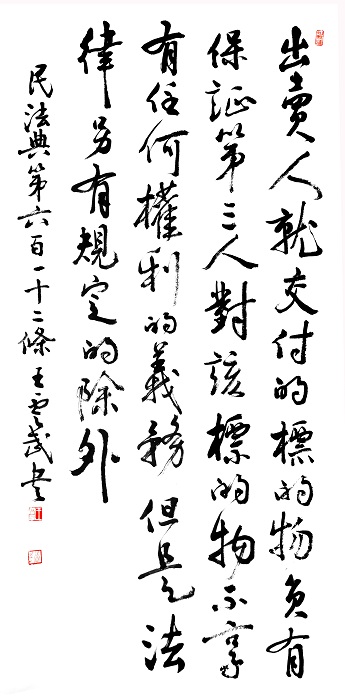 出賣人就交付的標的物負有
保証第三人對該標的物不享
有任何權利的義務但是法
律另有規定的除外
民法典第六百一十二條王雲武書